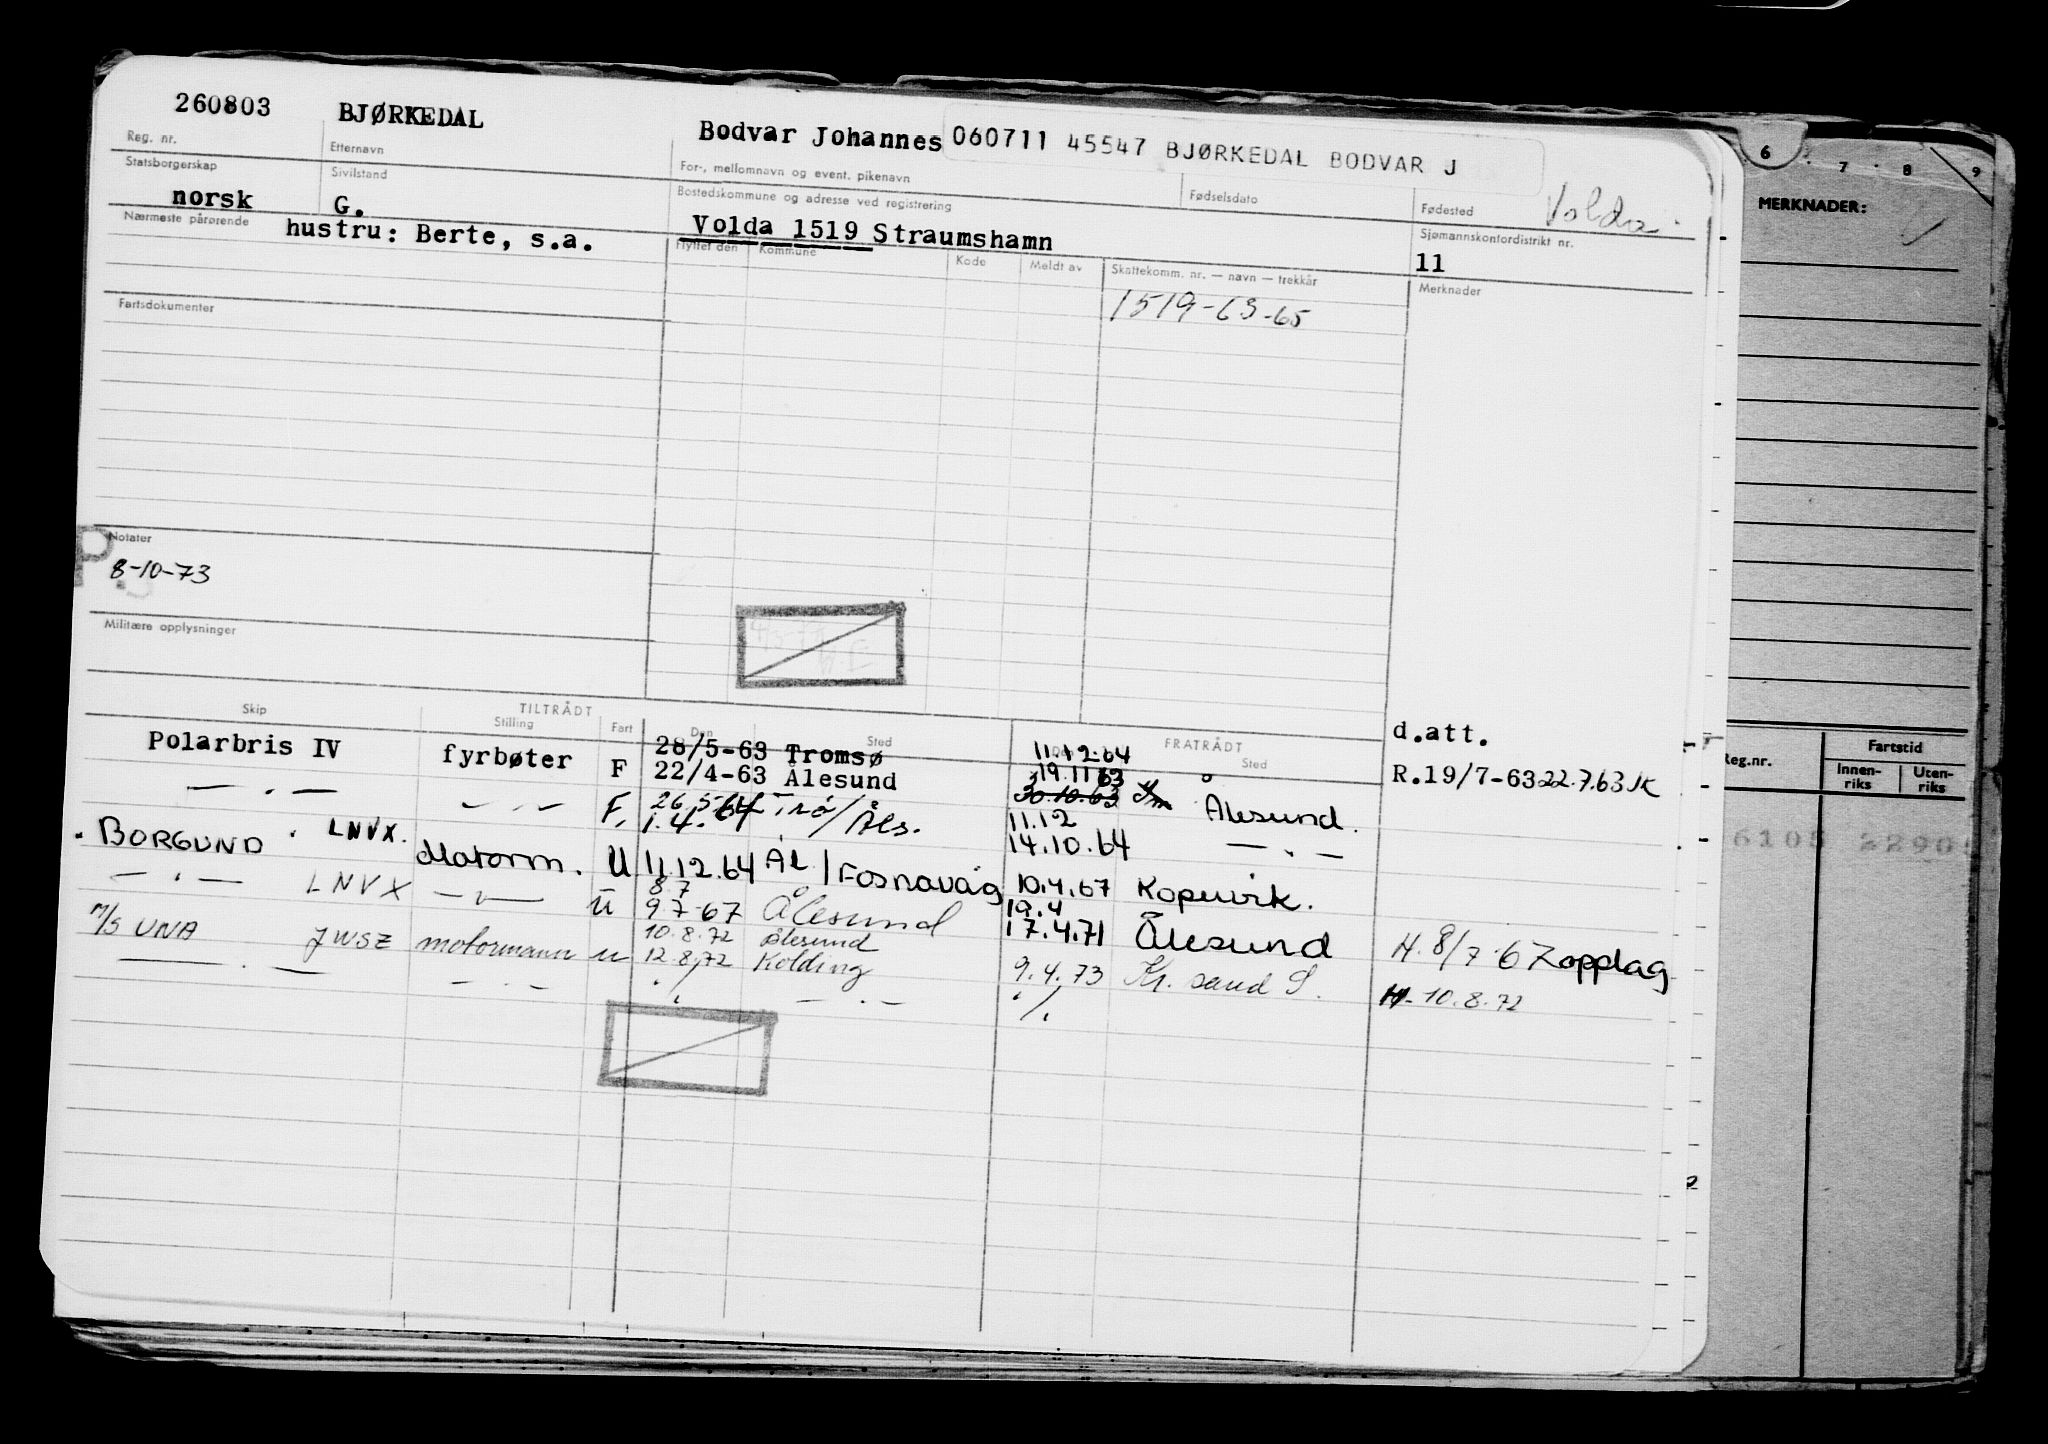 260803 BJØRKEDAL Bodvar Johannes 060711 45547 BJØRKEDAL BODVAR J
Reg. nr. Etternavn For-, mellomnavn og event. pikenavn Fødselsdato Fødested Volda
Statsborgerskap Sivilstand Bostedskommune og adresse ved registrering Sjømannskontordistrikt nr.
norsk G. Volda 1519 Straumshamn 11
Nærmeste pårørende hustru: Berte, s.a.
Flyttet den Kommune Kode Meldt av Skattekomm. nr. — navn — trekkår Merknader
1519-63-65
Fartsdokumenter
Notater
8-10-73
Militære opplysninger
TILTRÅDT FRATRÅDT
Skip Stilling Fart Den Sted Sted
d.att.
Polarbris IV fyrbøter F 28/5-63 Tromsø 11.12.64
22/4-63 Ålesund 19.11 63 R.19/7-63 22.7.63 JK
— " — — " — F. 26.5.64 Trö/Åls. 30.10.63 Ålesund.
1.4. 11.12
14.10.64 — " —
BORGUND LNVX. Motorm. U 11.12.64 ÅL/Fosnavåg 10.4.67 Kopervik.
— " — LNVX — " — U 8 7
9 7-67 Ålesund 19.4
17.4.71 Ålesund H. 8/7-67 opplag
M/S UNA JWSZ motormann u 10.8.72 Ålesund
12.8.72 Kolding 9.4.73 Kr. sand S. H. 10.8.72
— " — — " — ./. — " — ./.
6 7 8 9
MERKNADER:
Reg.nr. Fartstid
Innen-
riks Uten-
riks